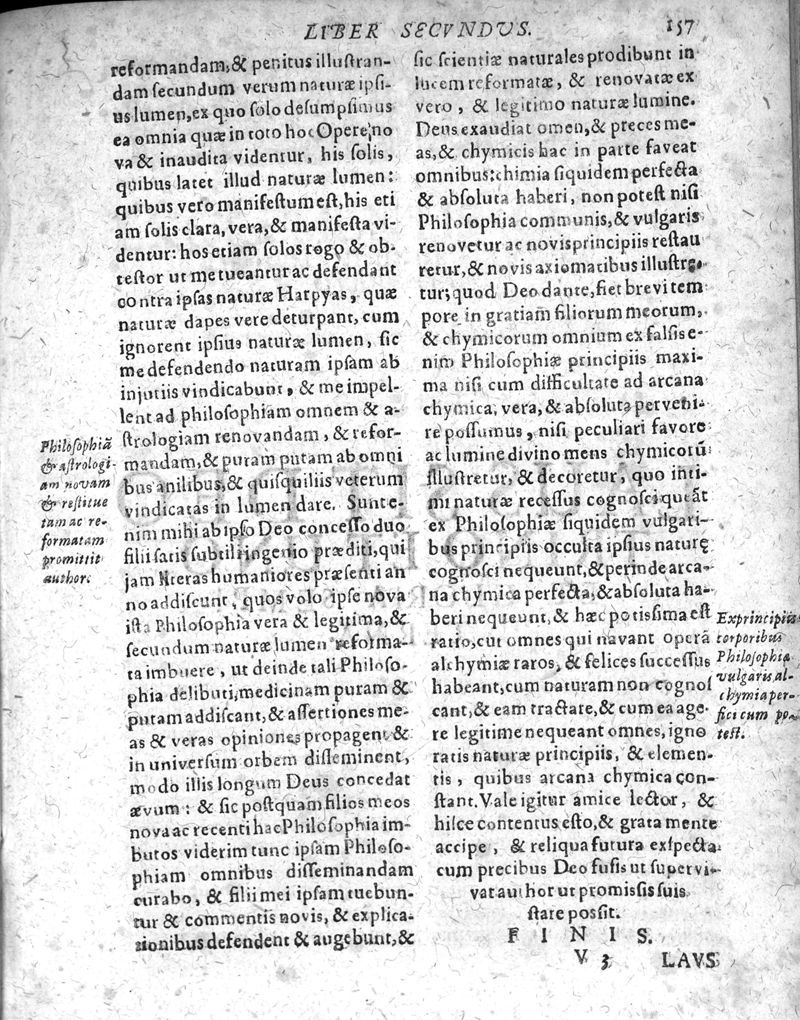 LIBER SECVNDVS. 157
reformandam, & penitus illuſtran-
dam secundum verum naturæ ipſi-
us lumen, ex quo ſolo deſumpſimus
ea omnia quæ in toto hoc Opere, no
va & inaudita videntur, his ſolis,
quibus latet illud naturæ lumen:
quibus vero manifeſtum eſt, his eti
am ſolis clara, vera, & manifeſta vi-
dentur: hos etiam ſolos rogo & ob-
teſtor ut me tueantur ac defendant
contra ipſas naturæ Harpyas, quæ
naturæ dapes vere deturpant, cum
ignorent ipſius naturæ lumen, ſic
me defendendo naturam ipſam ab
injuriis vindicabunt, & me impel-
lent ad philoſophiam omnem & a-
ſtrologiam renovandam, & refor-
mandam, & puram putam ab omni
bus anilibus, & quiſquiliis veterum
vindicatas in lumen dare. Sunt e-
nim mihi ab ipſo Deo conceſſo duo
filii ſatis ſubtili ingenio præditi, qui
jam literas humaniores præſenti an
no addiſcunt, quos volo ipſe nova
iſta Philoſophia vera & legitima, &
ſecundum naturæ lumen reforma-
ta imbuere, ut deinde tali Philoſo-
phia delibuti, medicinam puram &
putam addiſcant, & aſſertiones me-
as & veras opiniones propagent &
in univerſum orbem diſſeminent,
modo illis longum Deus concedat
ævum: & ſic poſtquam filios meos
nova ac recenti hac Philoſophia im-
butos viderim tunc ipſam Philoſo-
phiam omnibus diſſeminandam
curabo, & filii mei ipſam tuebun-
tur & commentis novis, & explica-
tionibus defendent & augebunt, &
Philoſophiã
& aſtrologi-
am novam
& reſtitue
tam ac re-
formatam
promittit
author.
ſic ſcientiæ naturales prodibunt in
lucem reformatæ, & renovatæ ex
vero, & legitimo naturæ lumine.
Deus exaudiat omen, & preces me-
as, & chymicis hac in parte faveat
omnibus: chimia ſiquidem perfecta
& abſoluta haberi, non poteſt niſi
Philoſophia communis, & vulgaris
renovetur ac novis principiis reſtau
retur, & novis axiomatibus illuſtre-
tur; quod Deo dante, fiet brevi tem
pore in gratiam filiorum meorum,
& chymicorum omnium ex falſis e-
nim Philoſophiæ principiis maxi-
ma niſi cum difficultate ad arcana
chymica, vera, & abſoluta perveni-
re poſſumus, niſi peculiari favore
ac lumine divino mens chymicorũ
illuſtretur, & decoretur, quo inti-
mi naturæ receſſus cognoſci queãt
ex Philoſophiæ ſiquidem vulgari-
bus principiis occulta ipſius naturę
cognoſci nequeunt, & perinde arca-
na chymica perfecta, & abſoluta ha-
beri nequeunt, & hæc potisſima eſt
ratio, cur omnes qui navant operã
alchymiæ raros, & felices ſucceſſus
habeant, cum naturam non cognoſ
cant, & eam tractate, & cum ea age-
re legitime nequeant omnes, igno
ratis naturæ principiis, & elemen-
tis, quibus arcana chymica con-
ſtant. Vale igitur amice lector, &
hiſce contentus eſto, & grata mente
accipe, & reliqua futura exſpecta
cum precibus Deo fuſis ut ſupervi-
vat author ut promisſis ſuis
ſtare poſſit.
FINIS.
Ex principiis
corporibus
Philoſophiæ
vulgaris, al-
chymia per-
fici cum po-
teſt.
V 3 LAVS